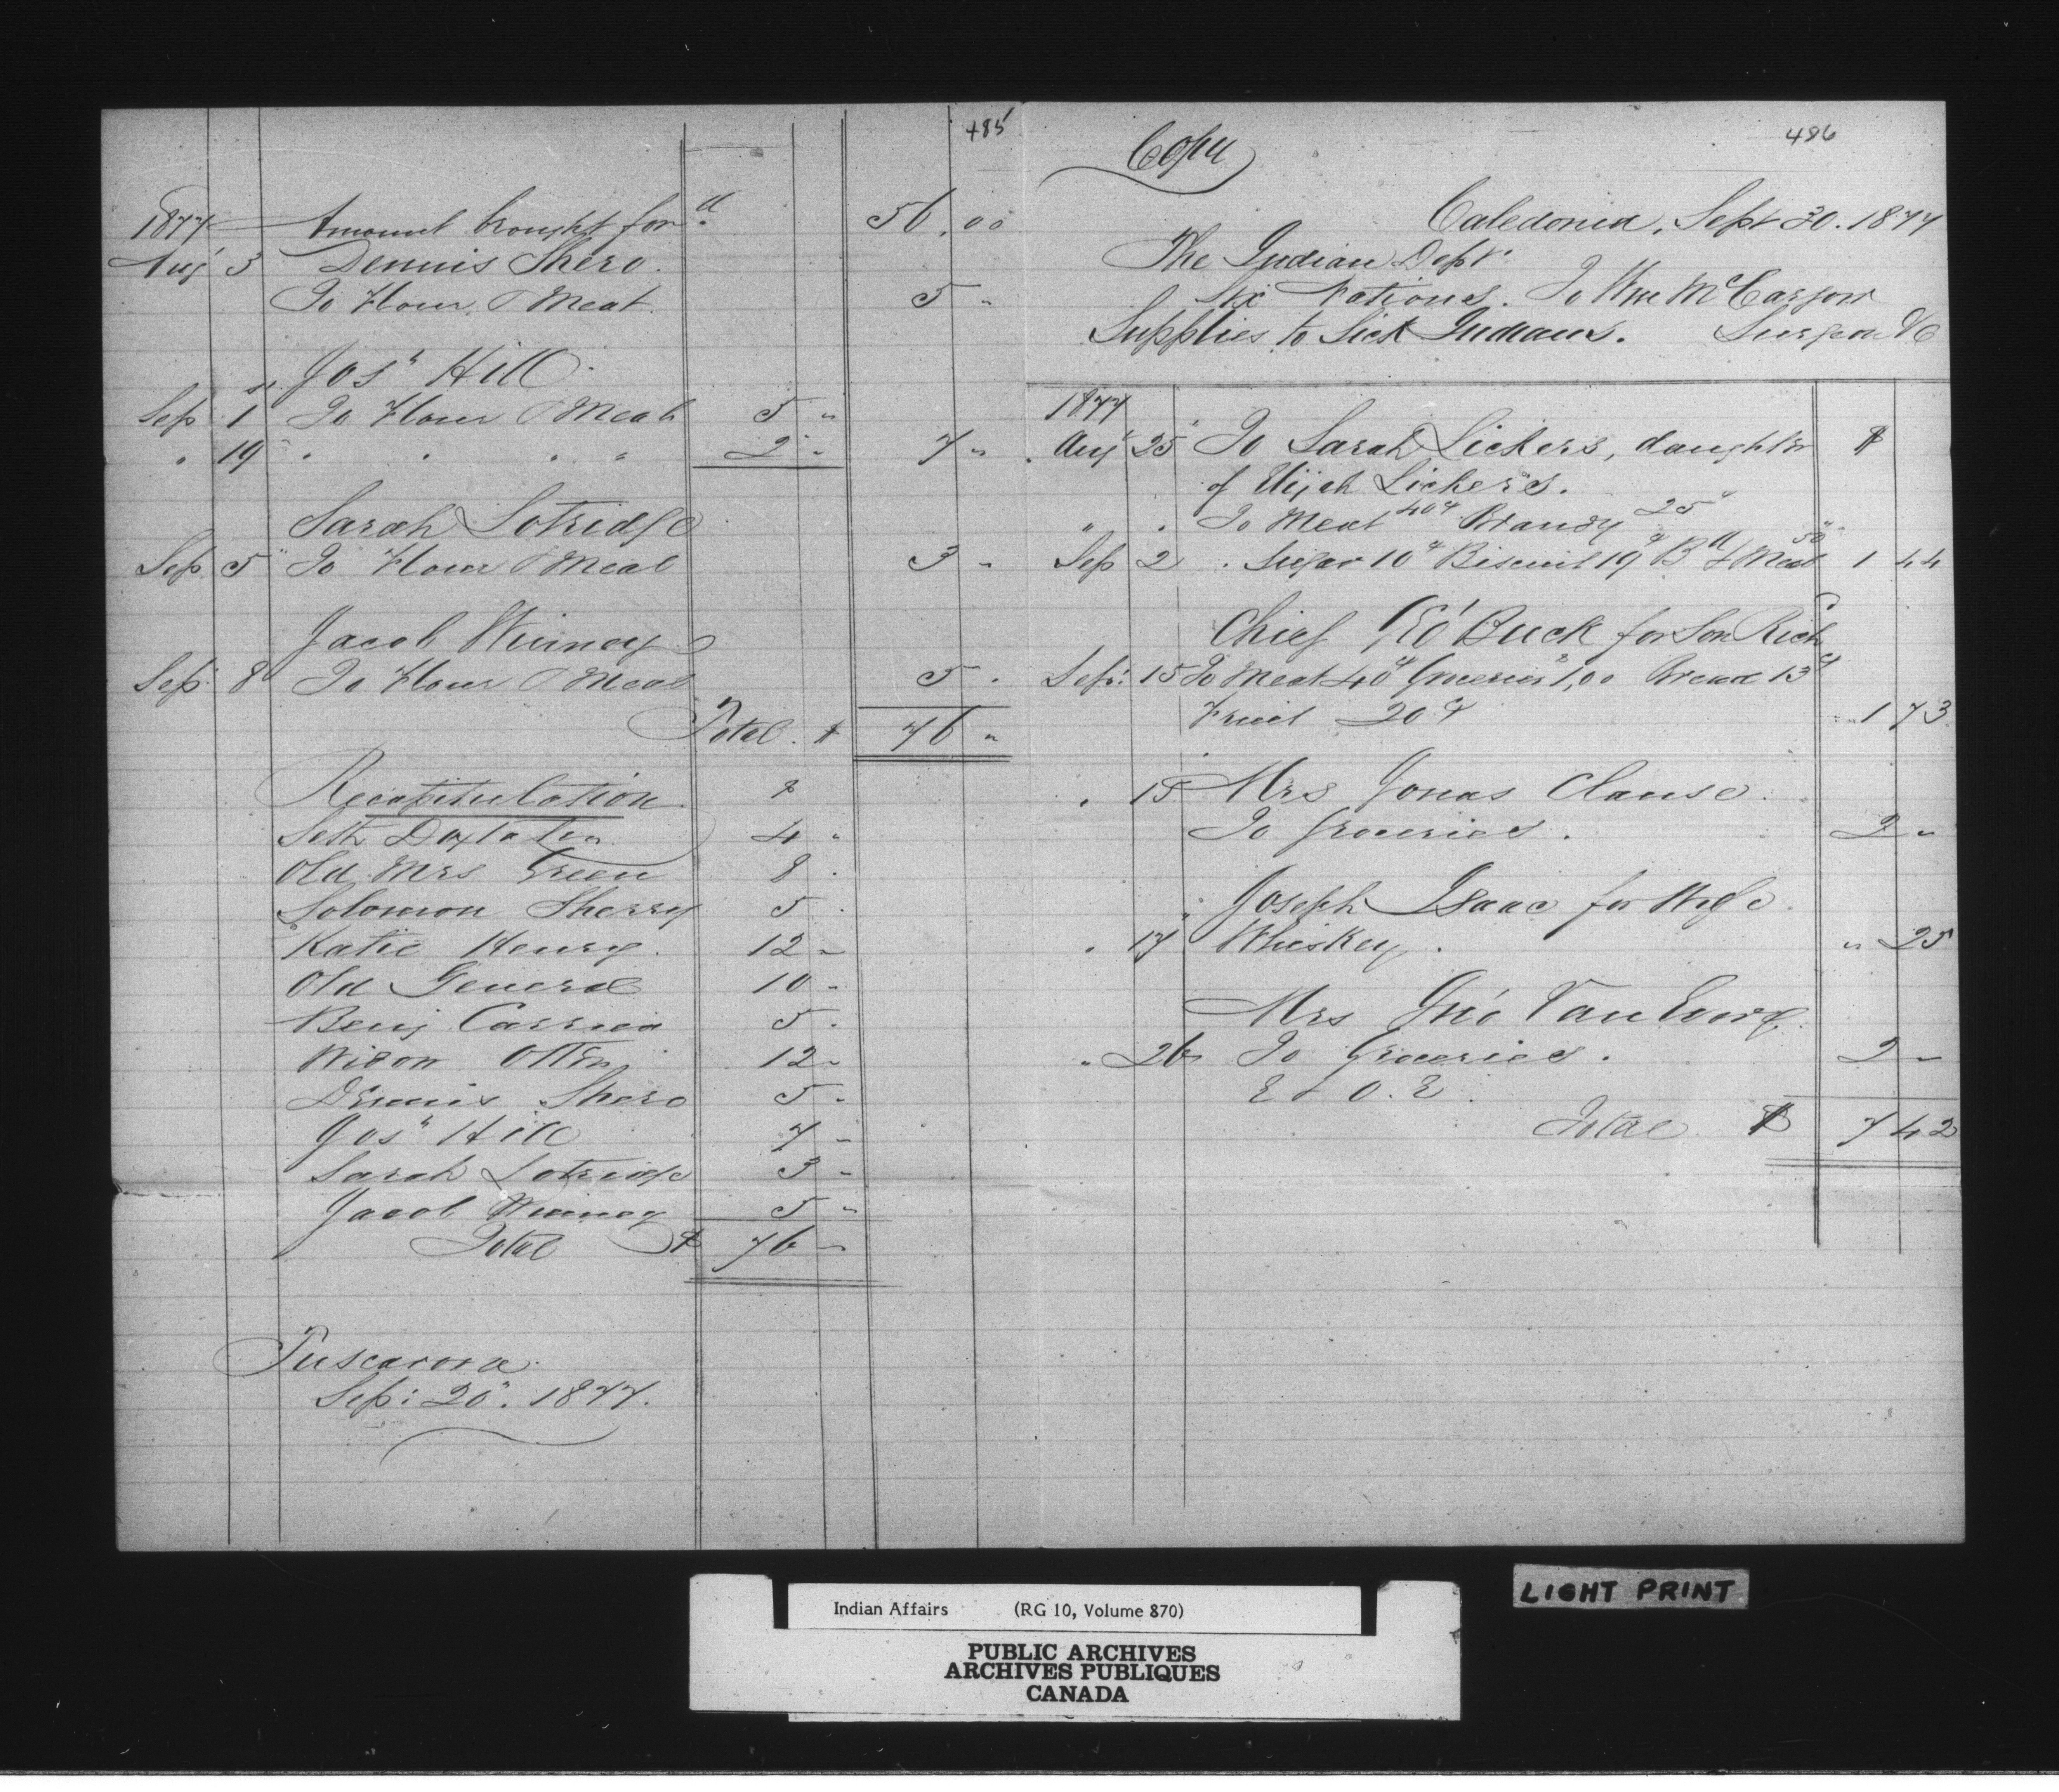 485
1877 Amount brought for.d 56.00
Aug 3 Dennis Shero.
To Flour & Meat. 5 "
Jos.h Hill.
Sep 1st To Flour & Meat 5 "
" 19 " " " " 2 " 7 "
Sarah Lotridge
Sep 5 To Flour & Meat 3 "
Jacob Winney
Sep. 8 To Flour & Meat 5 "
Total. $ 76 "
Recapitulation $
Seth Doxtater 4 "
Old Mrs Green 8 "
Solomon Sherry 5 "
Katie Henry. 12 "
Old General 10 "
Benj Carrier 5 "
Nixon Otten 12 "
Dennis Shero 5 "
Jos.h Hill 7 "
Sarah Lotridge 3 "
Jacob Winney 5 "
Total $ 76 "
Tuscarora.
Sep: 20". 1877.
486
Copy
Caledonia, Sept 30. 1877
The Indian Dept.
Six Nations. To Wm McCargow
Supplies to Sick Indians. Surgeon &c
1877
Aug 25 To Sarah Lickers, daughter $
of Elijah Lickers.
" " To Meat 40¢ Brandy 25"
Sep 2 " Sugar 10¢ Biscuit 19¢ B.d & Meat 50" 1 44
Chief Geo' Buck for Son Rich
Sep: 15 To Meat 40¢ Groceries 1,00 Bread 13¢
Fruit 20¢ " 1 73
" 15 Mrs Jonas Clause.
To Groceries. 2 "
Joseph Isaac for Wife.
" 17 Whiskey. " 25
Mrs Jno' VanEvery.
" 26 To Groceries. 2 "
E & O. E.
Total $ 7 42
LIGHT PRINT
Indian Affairs (RG 10, Volume 870)
PUBLIC ARCHIVES
ARCHIVES PUBLIQUES
CANADA